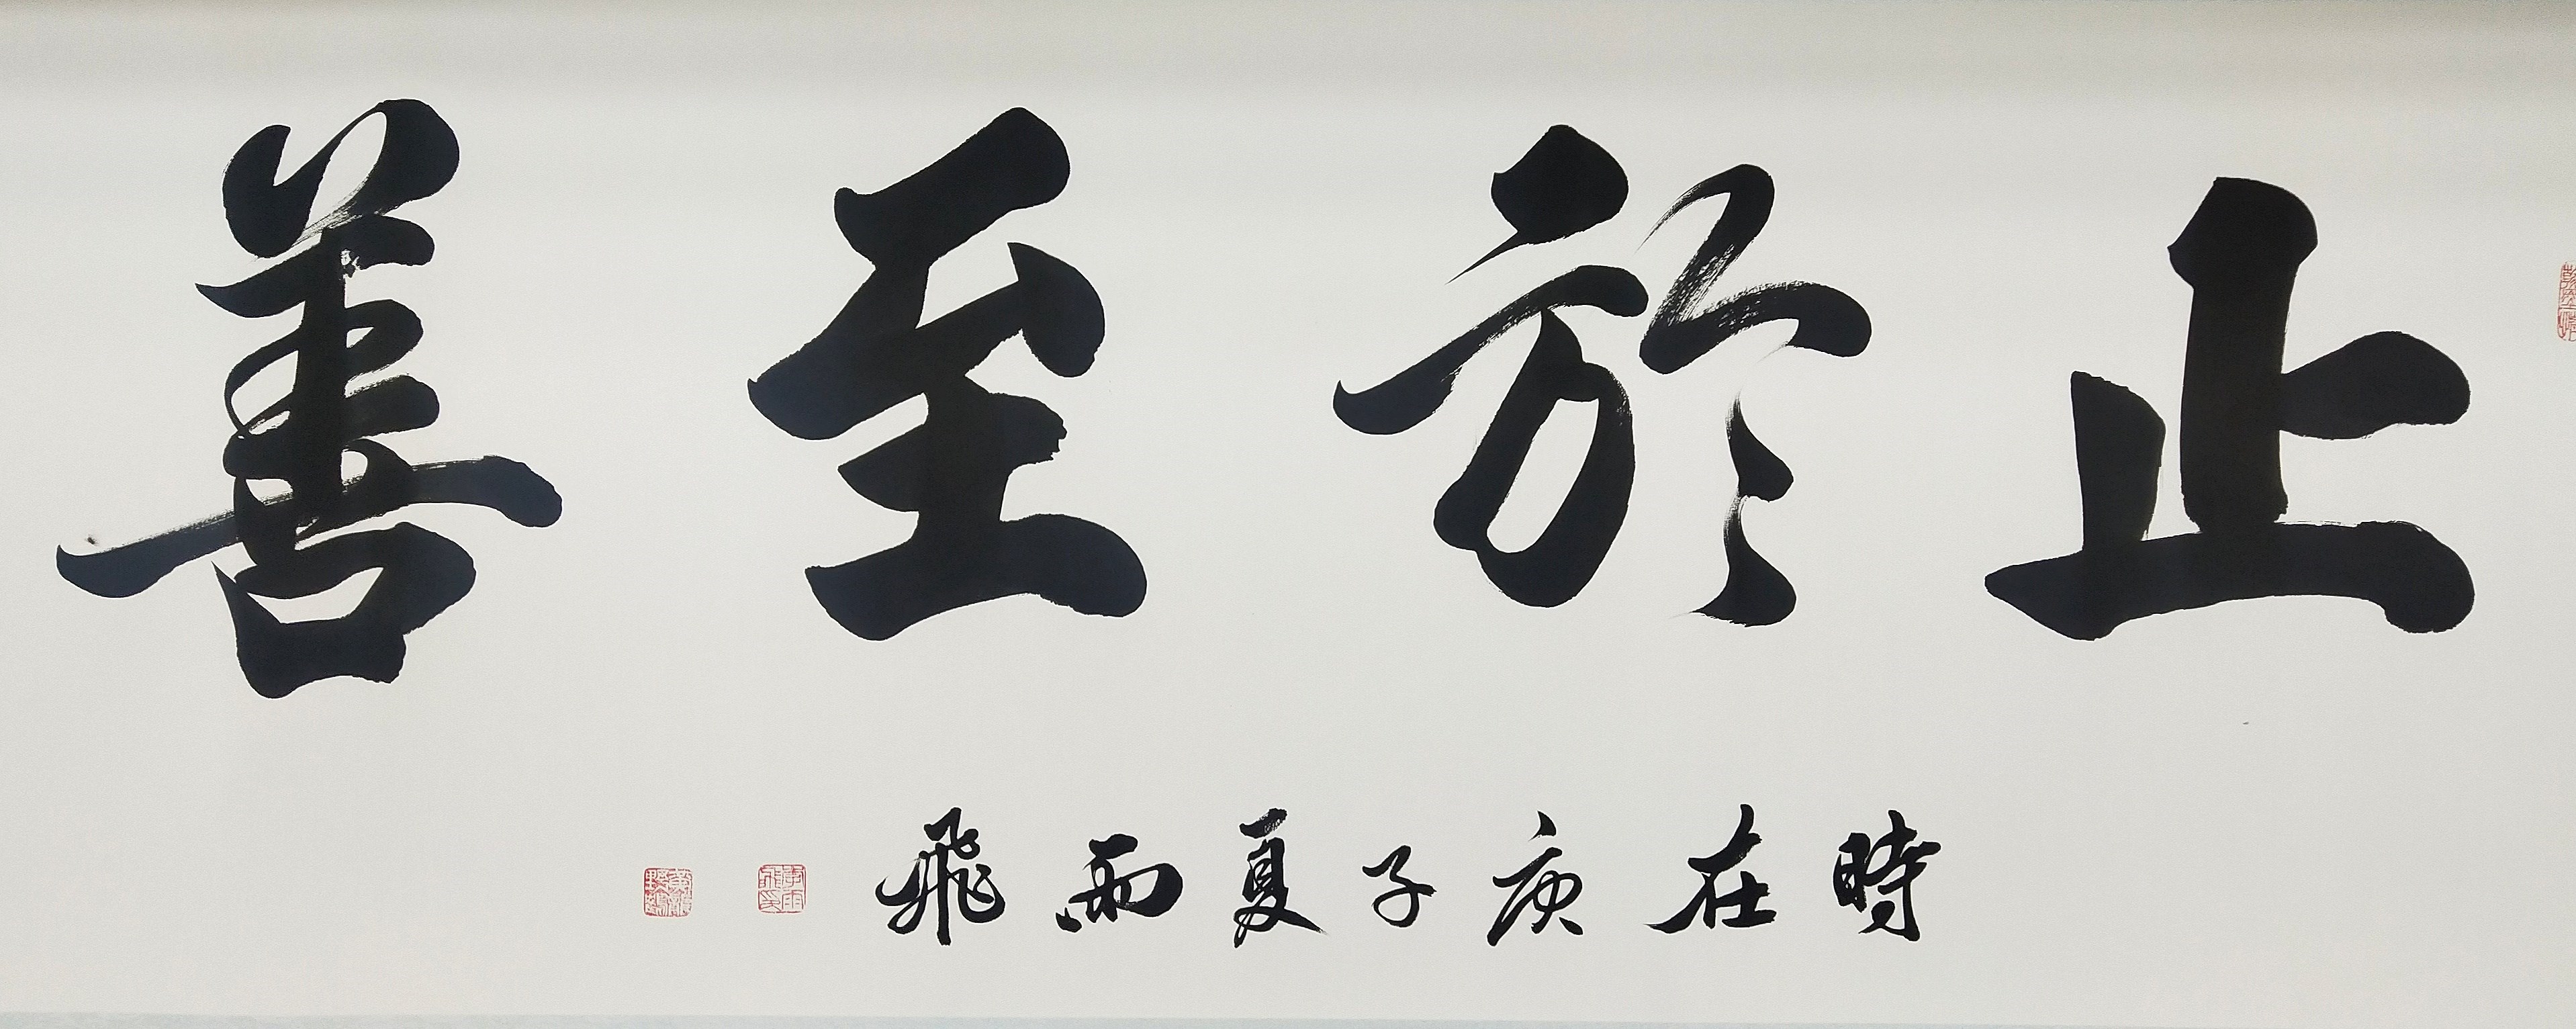 止於至善
時在庚子夏雨飛